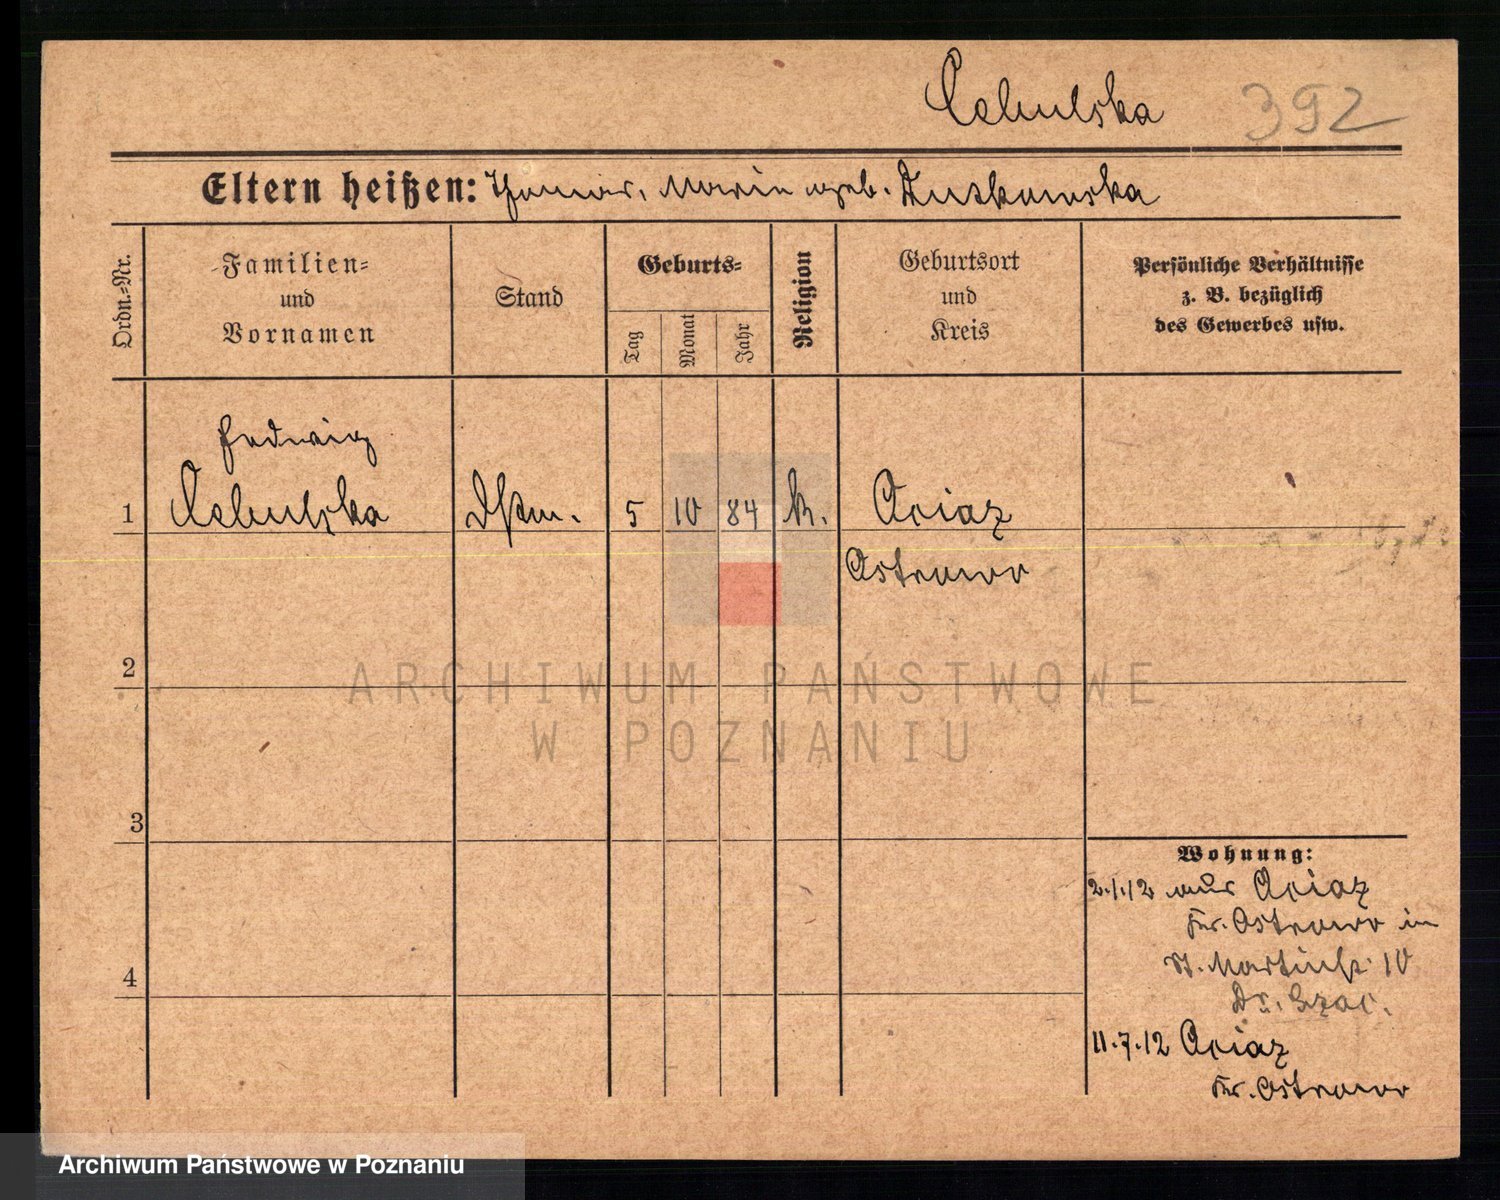 Cebulska 392
Eltern heißen: Thomas, Marie geb. Duskowska
Ordn.-Nr.
Familien-
und
Vornamen
Stand
Geburts-
Tag
Monat
Jahr
Religion
Geburtsort
und
Kreis
Persönliche Verhältnisse
z. B. bezüglich
des Gewerbes usw.
Hedwig
1 Cebulska 5 10 84 k. Ociaz
Ostrowo
2
3
4
Wohnung:
2.1.12 aus Ociaz
Kr. Ostrowo in
St. Martinstr. 10
11.7.12 Ociaz
Kr. Ostrowo
ARCHIWUM PAŃSTWOWE
W POZNANIU
Archiwum Państwowe w Poznaniu